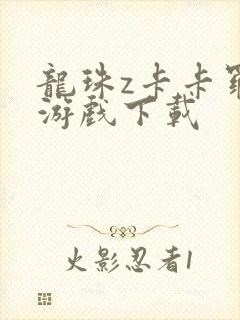 龍珠z卡卡羅
游戲下載
火影忍者1